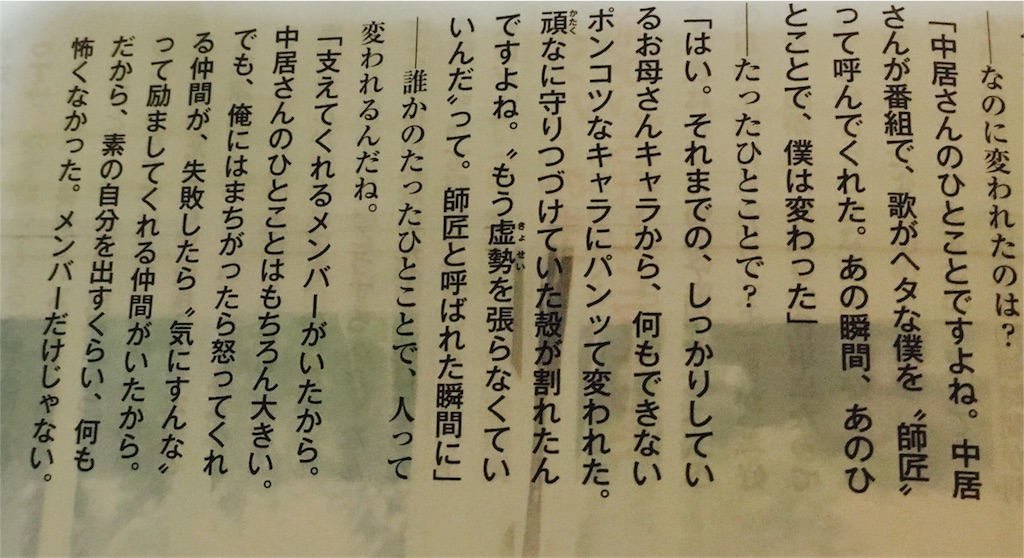 ――なのに変われたのは？
「中居さんのひとことですよね。中居
さんが番組で、歌がヘタな僕を〝師匠〟
って呼んでくれた。あの瞬間、あのひ
とことで、僕は変わった」
――たったひとことで？
「はい。それまでの、しっかりしてい
るお母さんキャラから、何もできない
ポンコツなキャラにパンッて変われた。
頑なに守りつづけていた殻が割れたん
ですよね。〝もう虚勢を張らなくてい
いんだ〟って。師匠と呼ばれた瞬間に」
――誰かのたったひとことで、人って
変われるんだね。
「支えてくれるメンバーがいたから。
中居さんのひとことはもちろん大きい。
でも、俺にはまちがったら怒ってくれ
る仲間が、失敗したら〝気にすんな〟
って励ましてくれる仲間がいたから。
だから、素の自分を出すくらい、何も
怖くなかった。メンバーだけじゃない。